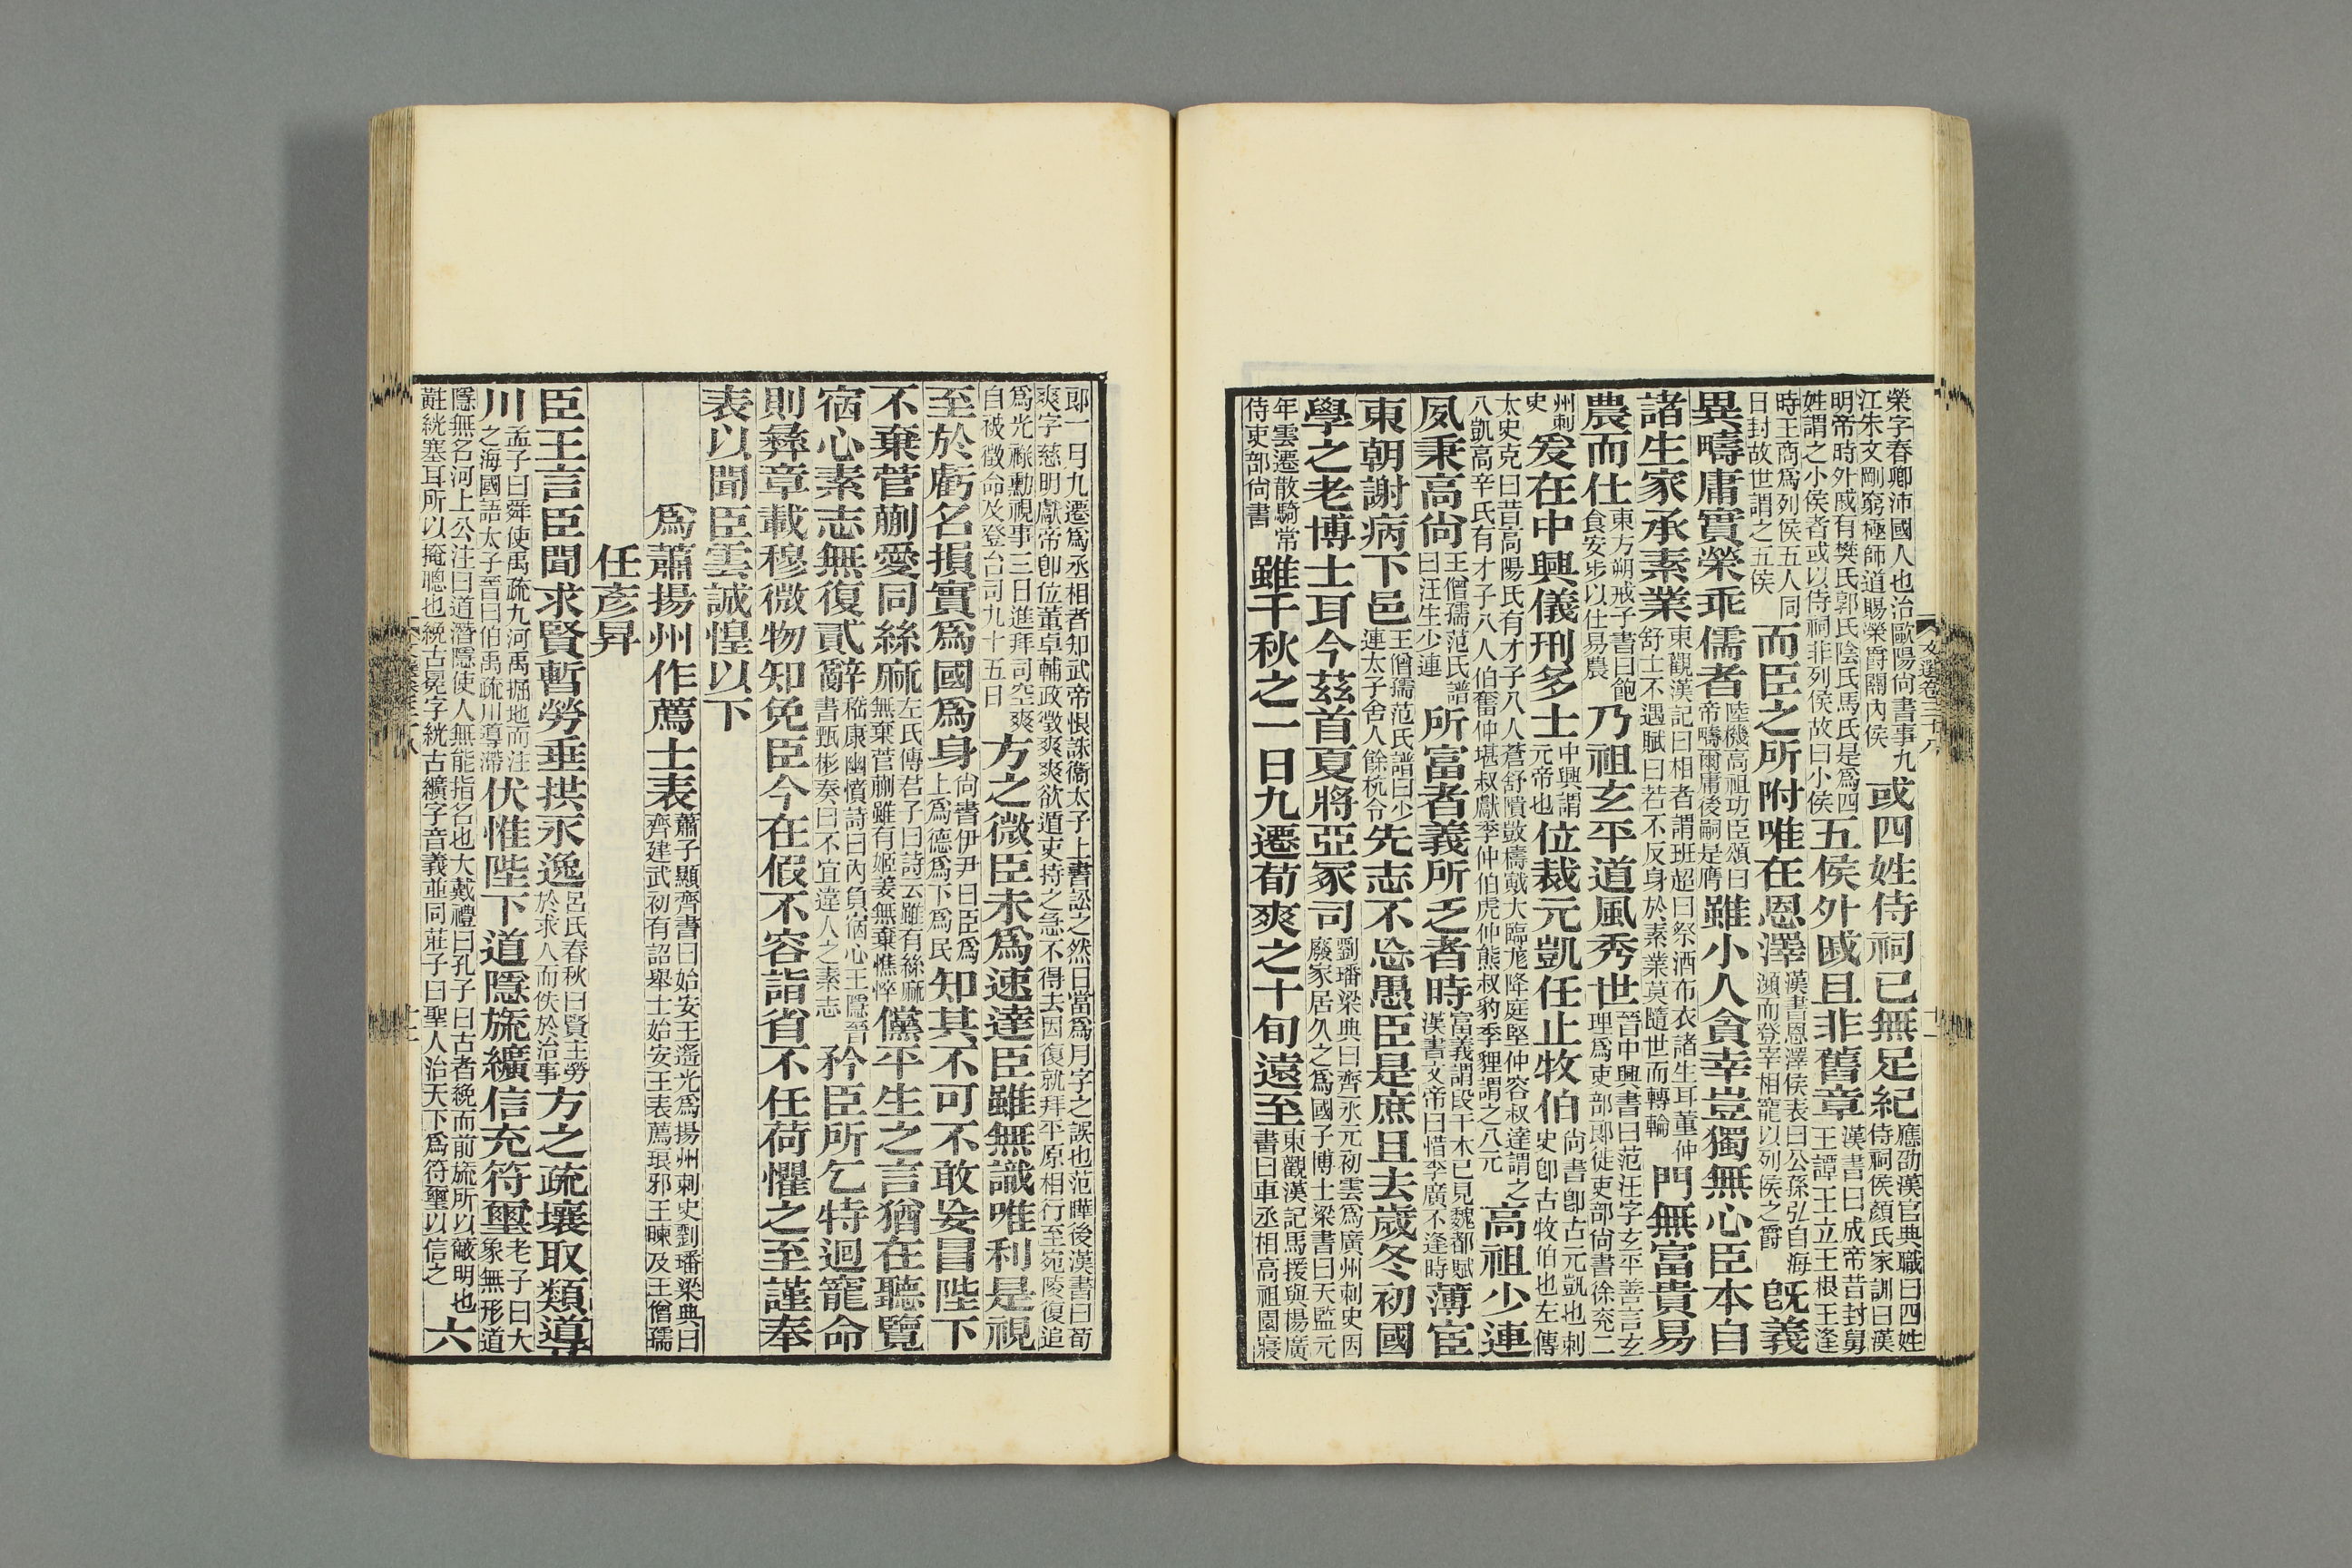 榮字春卿沛國人也治歐陽尚書事九江朱文剛窮極師道賜榮爵關內侯或四姓侍祠已無足紀應劭漢官典職曰四姓侍祠侯顏氏家訓曰漢
明帝時外戚有樊氏郭氏陰氏馬氏是爲四姓謂之小侯者或以侍祠非列侯故曰小侯五侯外戚且非舊章漢書曰成帝昔封舅王譚王立王根王逢
時王商爲列侯五人同日封故世謂之五侯而臣之所附唯在恩澤漢書恩澤侯表曰公孫弘自海瀕而登宰相寵以列侯之爵旣義
異疇庸實榮乖儒者陸機高祖功臣頌曰帝疇爾庸後嗣是膺雖小人貪幸豈獨無心臣本自
諸生家承素業東觀漢記曰相者謂班超曰祭酒布衣諸生耳董仲舒士不遇賦曰若不反身於素業莫隨世而轉輪門無富貴易
農而仕東方朔戒子書曰飽食安步以仕易農乃祖玄平道風秀世晉中興書曰范汪字玄平善言玄理爲吏部郎徙吏部尚書徐兗二
州刺史爰在中興儀刑多士中興謂元帝也位裁元凱任止牧伯尚書卽古元凱也刺史卽古牧伯也左傳
太史克曰昔高陽氏有才子八人蒼舒隤敱檮戭大臨尨降庭堅仲容叔達謂之八凱高辛氏有才子八人伯奮仲堪叔獻季仲伯虎仲熊叔豹季貍謂之八元高祖少連
夙秉高尚王僧孺范氏譜曰汪生少連所富者義所乏者時富義謂段干木已見魏都賦漢書文帝曰惜李廣不逢時薄宦
東朝謝病下邑王僧孺范氏譜曰少連太子舍人餘杭令先志不忘愚臣是庶且去歲冬初國
學之老博士耳今茲首夏將亞冢司劉璠梁典曰齊永元初雲爲廣州刺史因廢家居久之爲國子博士梁書曰天監元
年雲遷散騎常侍吏部尚書雖千秋之一日九遷荀爽之十旬遠至東觀漢記馬援與楊廣書曰車丞相高祖園寢
郎一月九遷爲丞相者知武帝恨誅衞太子上書訟之然日當爲月字之誤也范曄後漢書曰荀爽字慈明獻帝卽位董卓輔政徵爽爽欲遁吏持之急不得去因復就拜平原相行至宛陵復追
爲光祿勳視事三日進拜司空爽自被徵命及登台司九十五日方之微臣未爲速達臣雖無識唯利是視
至於虧名損實爲國爲身尚書伊尹曰臣爲上爲德爲下爲民知其不可不敢妄冒陛下
不棄菅蒯愛同絲麻左氏傳君子曰詩云雖有絲麻無棄菅蒯雖有姬姜無棄憔悴儻平生之言猶在聽覽
宿心素志無復貳辭嵇康幽憤詩曰內負宿心王隱晉書甄彬奏曰不宜違人之素志矜臣所乞特迴寵命
則彝章載穆微物知免臣今在假不容詣省不任荷懼之至謹奉
表以聞臣雲誠惶以下
爲蕭揚州作薦士表蕭子顯齊書曰始安王遙光爲揚州刺史劉璠梁典曰齊建武初有詔舉士始安王表薦琅邪王暕及王僧孺
任彥昇
臣王言臣聞求賢暫勞垂拱永逸呂氏春秋曰賢主勞於求人而佚於治事方之疏壤取類導
川孟子曰舜使禹疏九河禹堀地而注之海國語太子晉曰伯禹疏川導滯伏惟陛下道隱旒纊信充符璽老子曰大象無形道
隱無名河上公注曰道潛隱使人無能指名也大戴禮曰孔子曰古者絻而前旒所以蔽明也黈絖塞耳所以掩聰也絻古冕字絖古纊字音義並同莊子曰聖人治天下爲符璽以信之六
文選卷三十八
十一